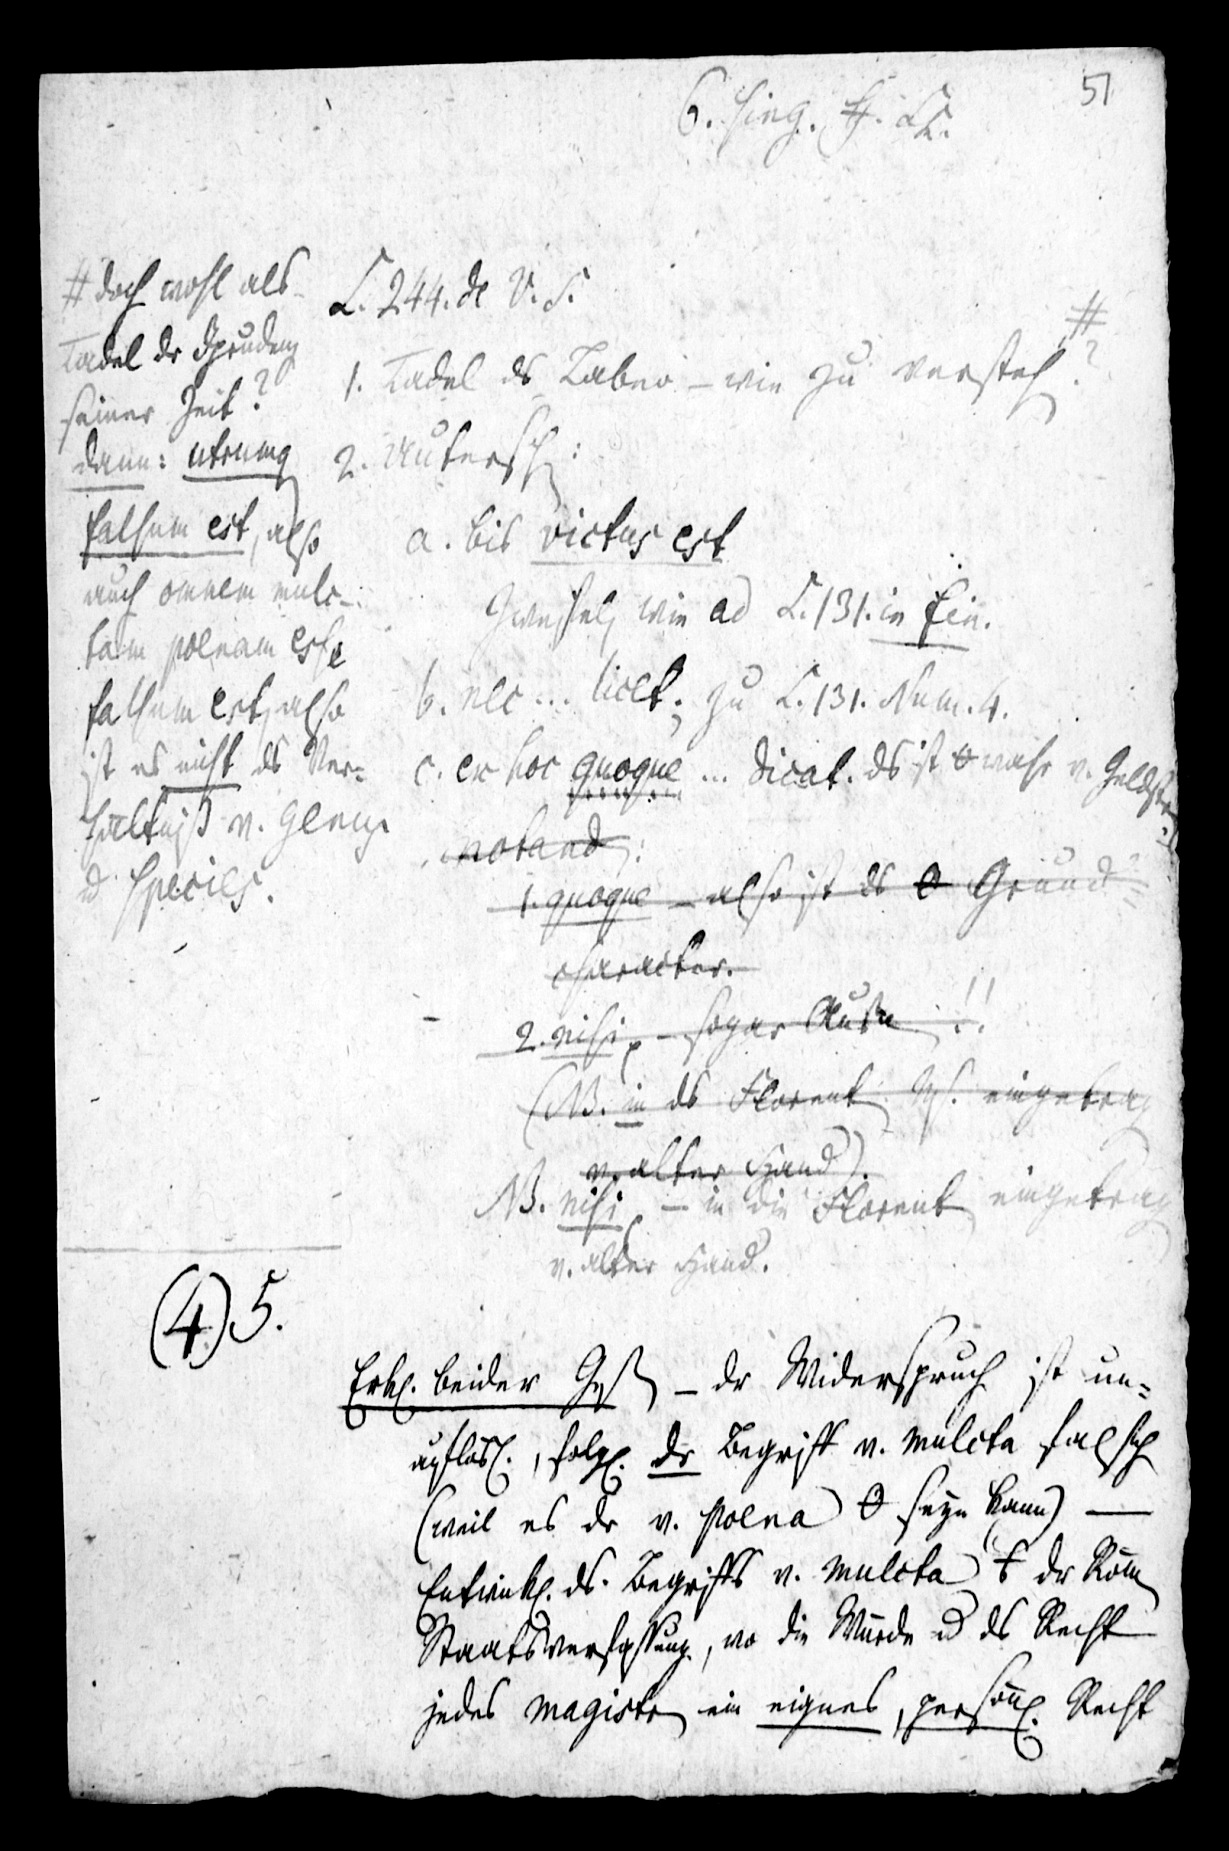 51
6. sing.
# doch wohl als
Tadel dr Jprudenz
seiner Zeit?
dann: utrumq
falsum est, also
auch omnem mulc-
tam poenam esse
falsum est, also
ist es nicht ds Ver=
hältniß v. Genus
u Species.
L. 244. de V. S.
#
1. Tadel ds Labeo – wie zu versteh?
2. Untersch:
a. bis victus est
Zweifel, wie ad L. 131. in fin.
b. nec ... licet; zu L. 131. Num. 4.
c. ex hoc quoque ... dicat. ds ist wahr v. Geldstr
notand:
1. quoque – also ist ds Grund
character.
2. nisi – sogar !!
(NB. in ds Florent. Ms. eingetrag
v. alter Hand).
NB. nisi – in die Florent eingetrag
v. alter Hand.
(4.) 5.
Erkl. beider – dr Widerspruch ist un=
auflösl., folgl. dr Begriff v. mulcta falsch
(weil es dr v. poena seyn kann) —
Entwickl. ds. Begriffs v. mulcta dr Röm
Staatsverfassung, wo die Würde u ds Recht
jedes Magistr ein eignes, persönl. Recht